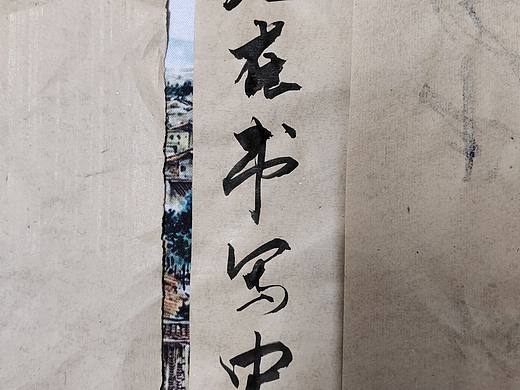 在书写中